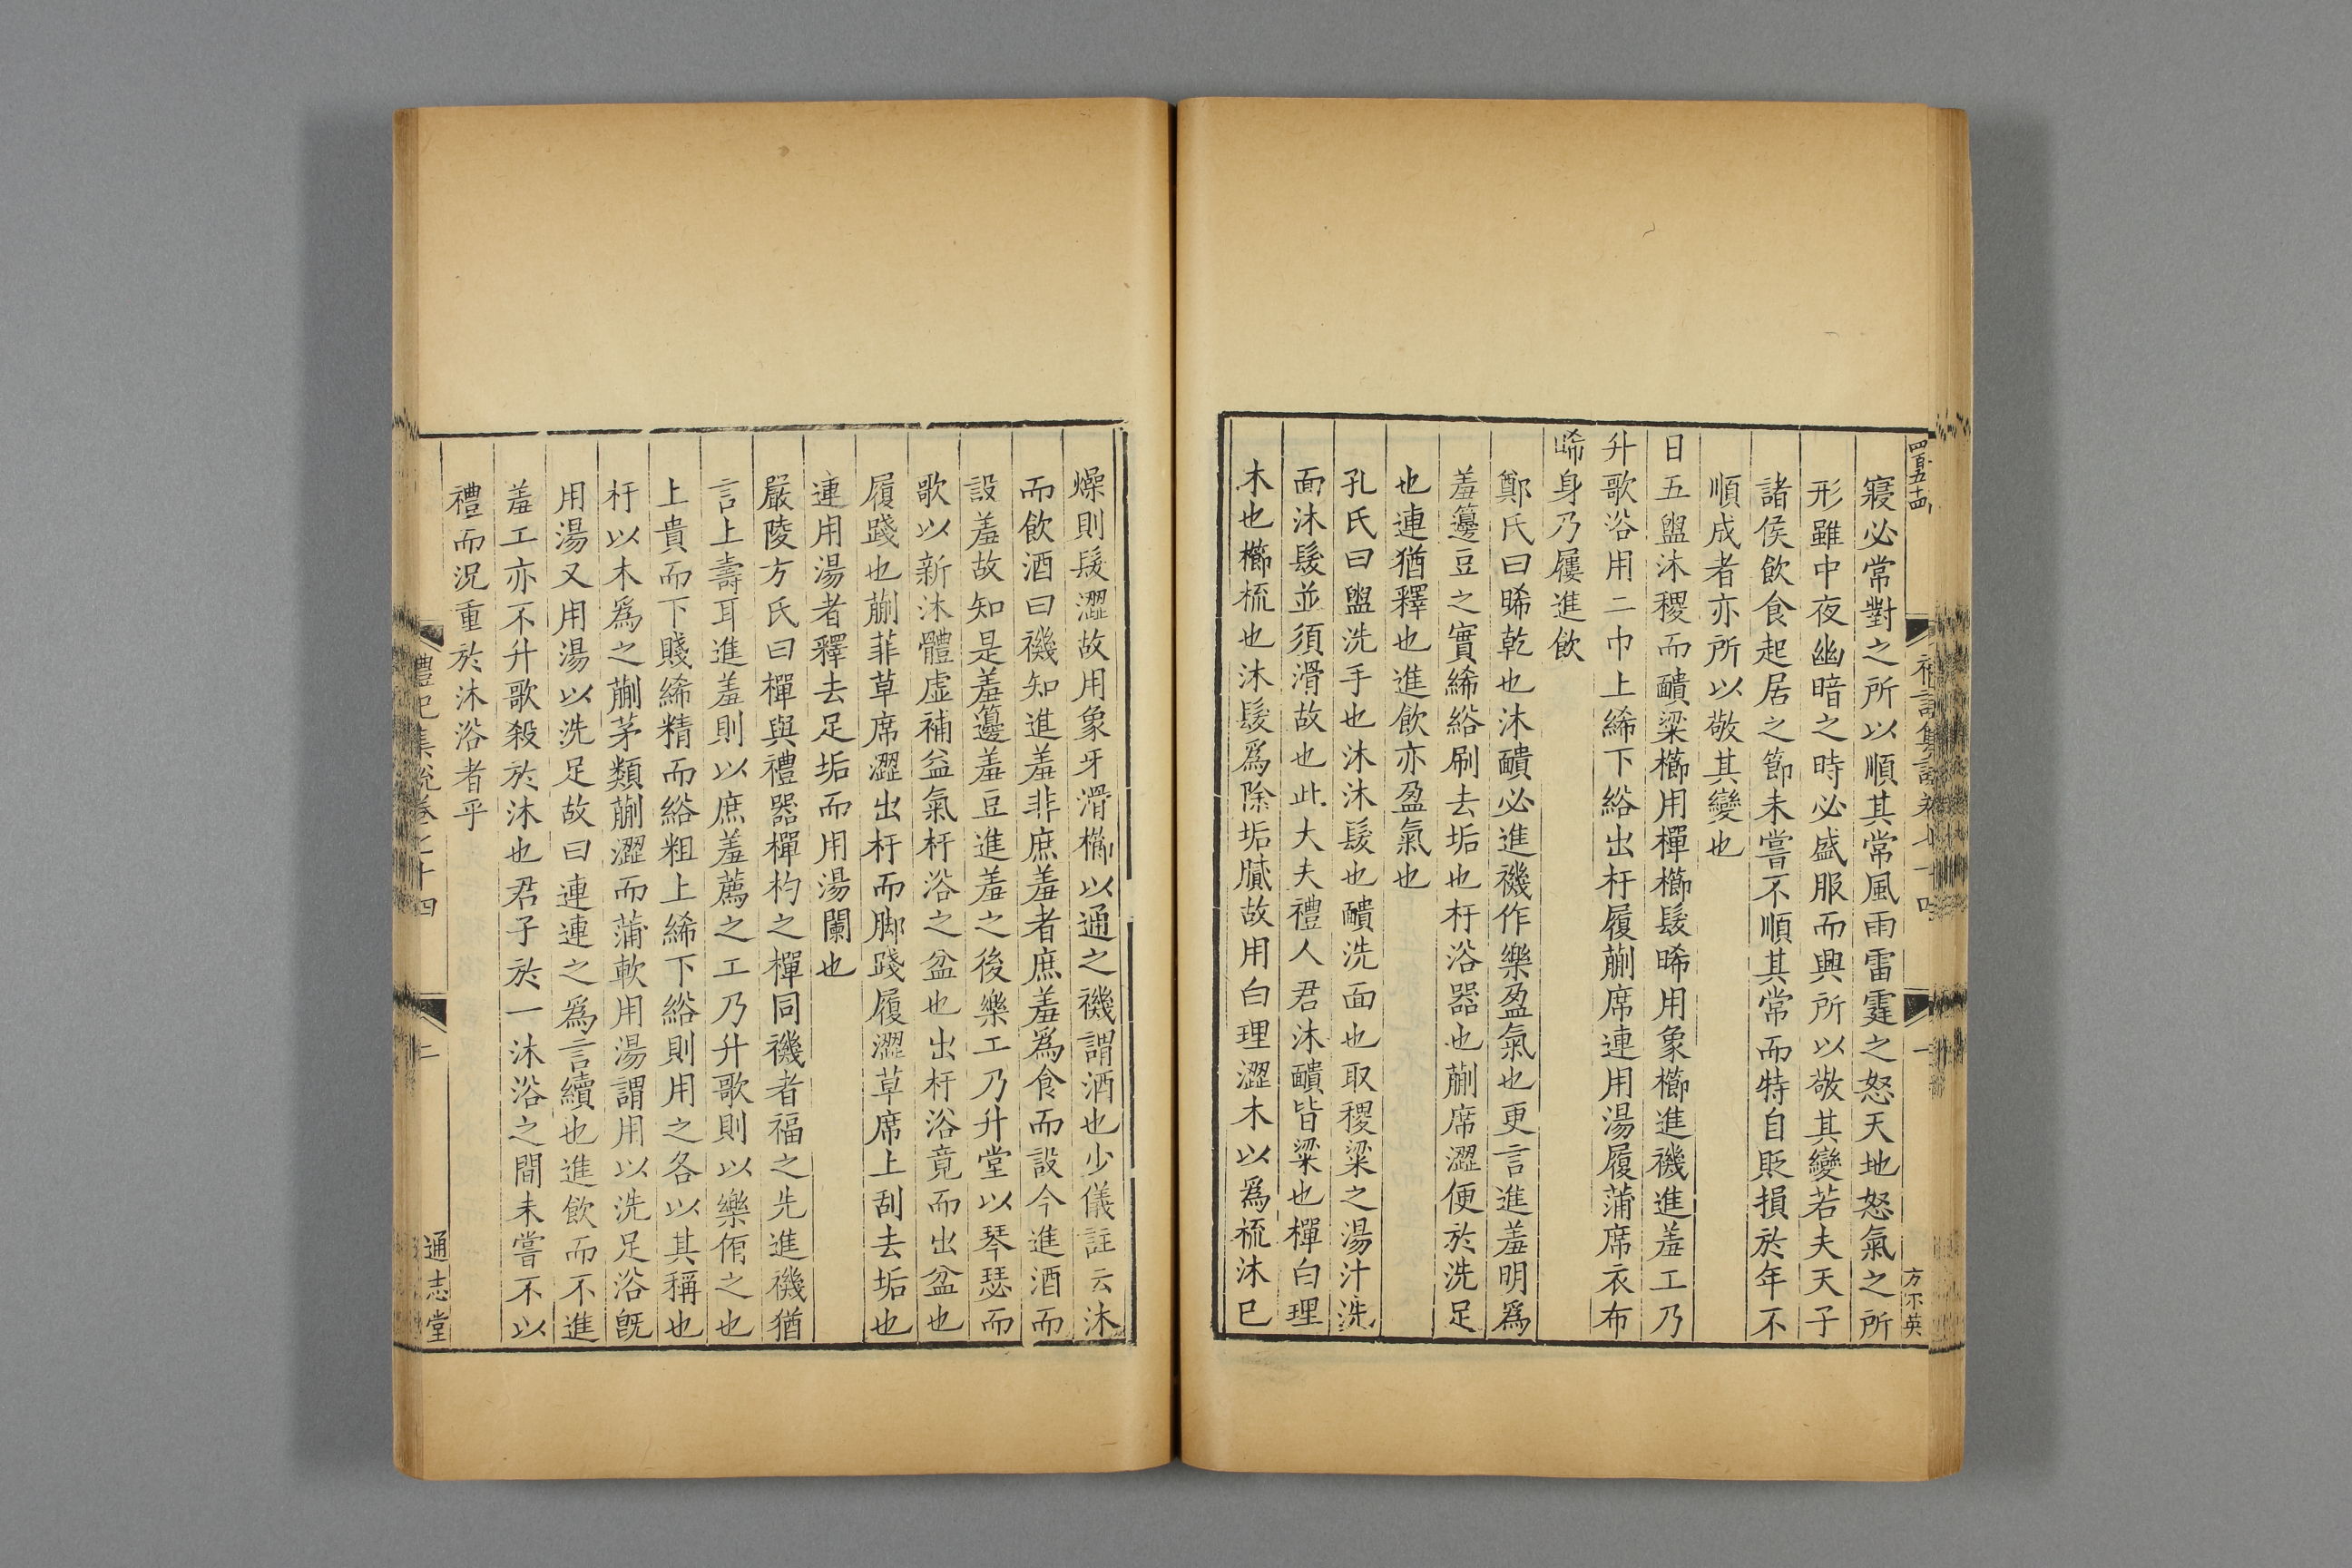 四百五十四
方不英
寢必常對之所以順其常風雨雷霆之怒天地怒氣之所
形雖中夜幽暗之時必盛服而興所以敬其變若夫天子
諸侯飲食起居之節未嘗不順其常而特自貶損於年不
順成者亦所以敬其變也
日五盥沐稷而靧粱櫛用樿櫛髮晞用象櫛進禨進羞工乃
升歌浴用二巾上絺下綌出杅履蒯席連用湯履蒲席衣布
晞身乃屨進飲
鄭氏曰晞乾也沐靧必進禨作樂盈氣也更言進羞明爲
羞籩豆之實絺綌刷去垢也杅浴器也蒯席澀便於洗足
也連猶釋也進飲亦盈氣也
孔氏曰盥洗手也沐沐髮也靧洗面也取稷粱之湯汁洗
面沐髮並須滑故也此大夫禮人君沐靧皆粱也樿白理
木也櫛梳也沐髮爲除垢膩故用白理澀木以爲梳沐已
燥則髮澀故用象牙滑櫛以通之禨謂酒也少儀註云沐
而飲酒曰禨知進羞非庶羞者庶羞爲食而設今進酒而
設羞故知是羞籩羞豆進羞之後樂工乃升堂以琴瑟而
歌以新沐體虛補益氣杅浴之盆也出杅浴竟而出盆也
履踐也蒯菲草席澀出杅而脚踐履澀草席上刮去垢也
連用湯者釋去足垢而用湯闌也
嚴陵方氏曰樿與禮器樿杓之樿同禨者福之先進禨猶
言上壽耳進羞則以庶羞薦之工乃升歌則以樂侑之也
上貴而下賤絺精而綌粗上絺下綌則用之各以其稱也
杅以木爲之蒯茅類蒯澀而蒲軟用湯謂用以洗足浴旣
用湯又用湯以洗足故曰連連之爲言續也進飲而不進
羞工亦不升歌殺於沐也君子於一沐浴之間未嘗不以
禮而況重於沐浴者乎
禮記集說卷七十四
二
通志堂